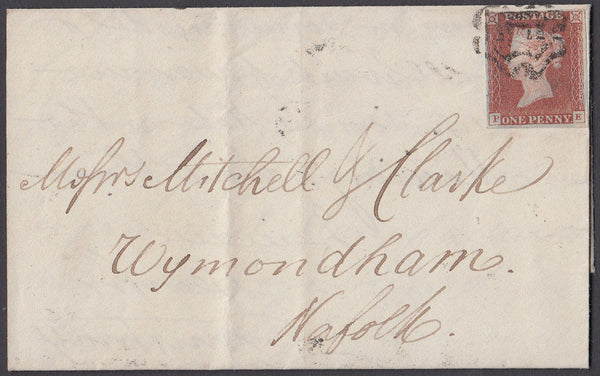 POSTAGE
P ONE PENNY E
Messrs Mitchell & Clarke
Wymondham.
Nafolk.